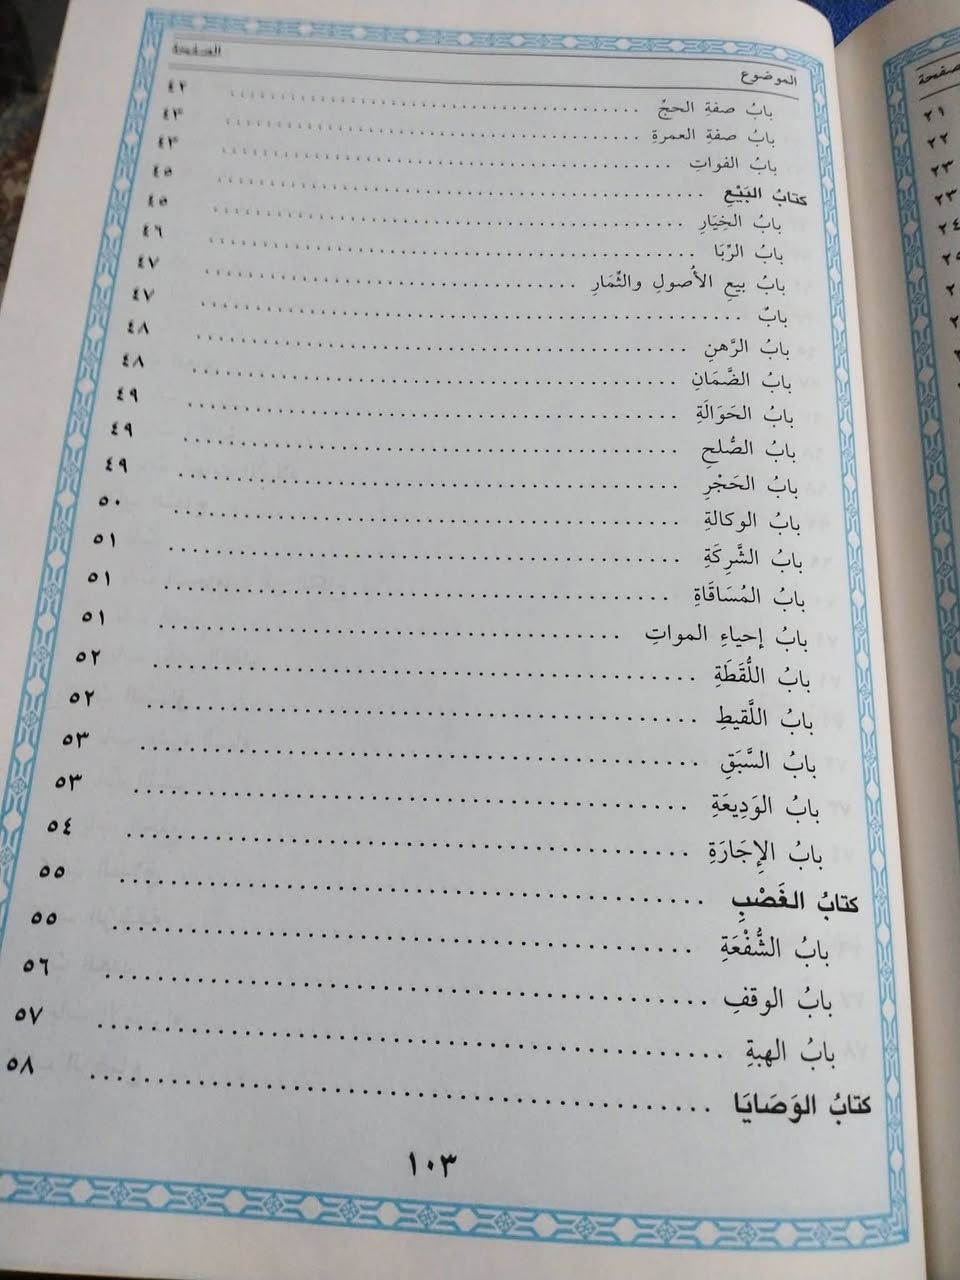 ٢١
٢٢
٢٣
٢٣
٢٤
الموضوع الصفحة
بابُ صفةِ الحجِّ ........ ٤٢
بابُ صفةِ العمرةِ ........ ٤٣
بابُ الفواتِ ........ ٤٣
كتابُ البَيْعِ ........ ٤٥
بابُ الخِيَارِ ........ ٤٥
بابُ الرِّبَا ........ ٤٦
بابُ بيعِ الأُصولِ والثِّمَارِ ........ ٤٧
بابٌ ........ ٤٧
بابُ الرَّهنِ ........ ٤٨
بابُ الضَّمَانِ ........ ٤٨
بابُ الحَوَالَةِ ........ ٤٩
بابُ الصُّلحِ ........ ٤٩
بابُ الحَجْرِ ........ ٤٩
بابُ الوكالةِ ........ ٥٠
بابُ الشَّرِكَةِ ........ ٥١
بابُ المُسَاقَاةِ ........ ٥١
بابُ إحياءِ المواتِ ........ ٥١
بابُ اللُّقَطَةِ ........ ٥٢
بابُ اللَّقيطِ ........ ٥٢
بابُ السَّبَقِ ........ ٥٣
بابُ الوَدِيعَةِ ........ ٥٣
بابُ الإِجَارَةِ ........ ٥٤
كتابُ الغَصْبِ ........ ٥٥
بابُ الشُّفْعَةِ ........ ٥٥
بابُ الوقفِ ........ ٥٦
بابُ الهبةِ ........ ٥٧
كتابُ الوَصَايَا ........ ٥٨
١٠٣